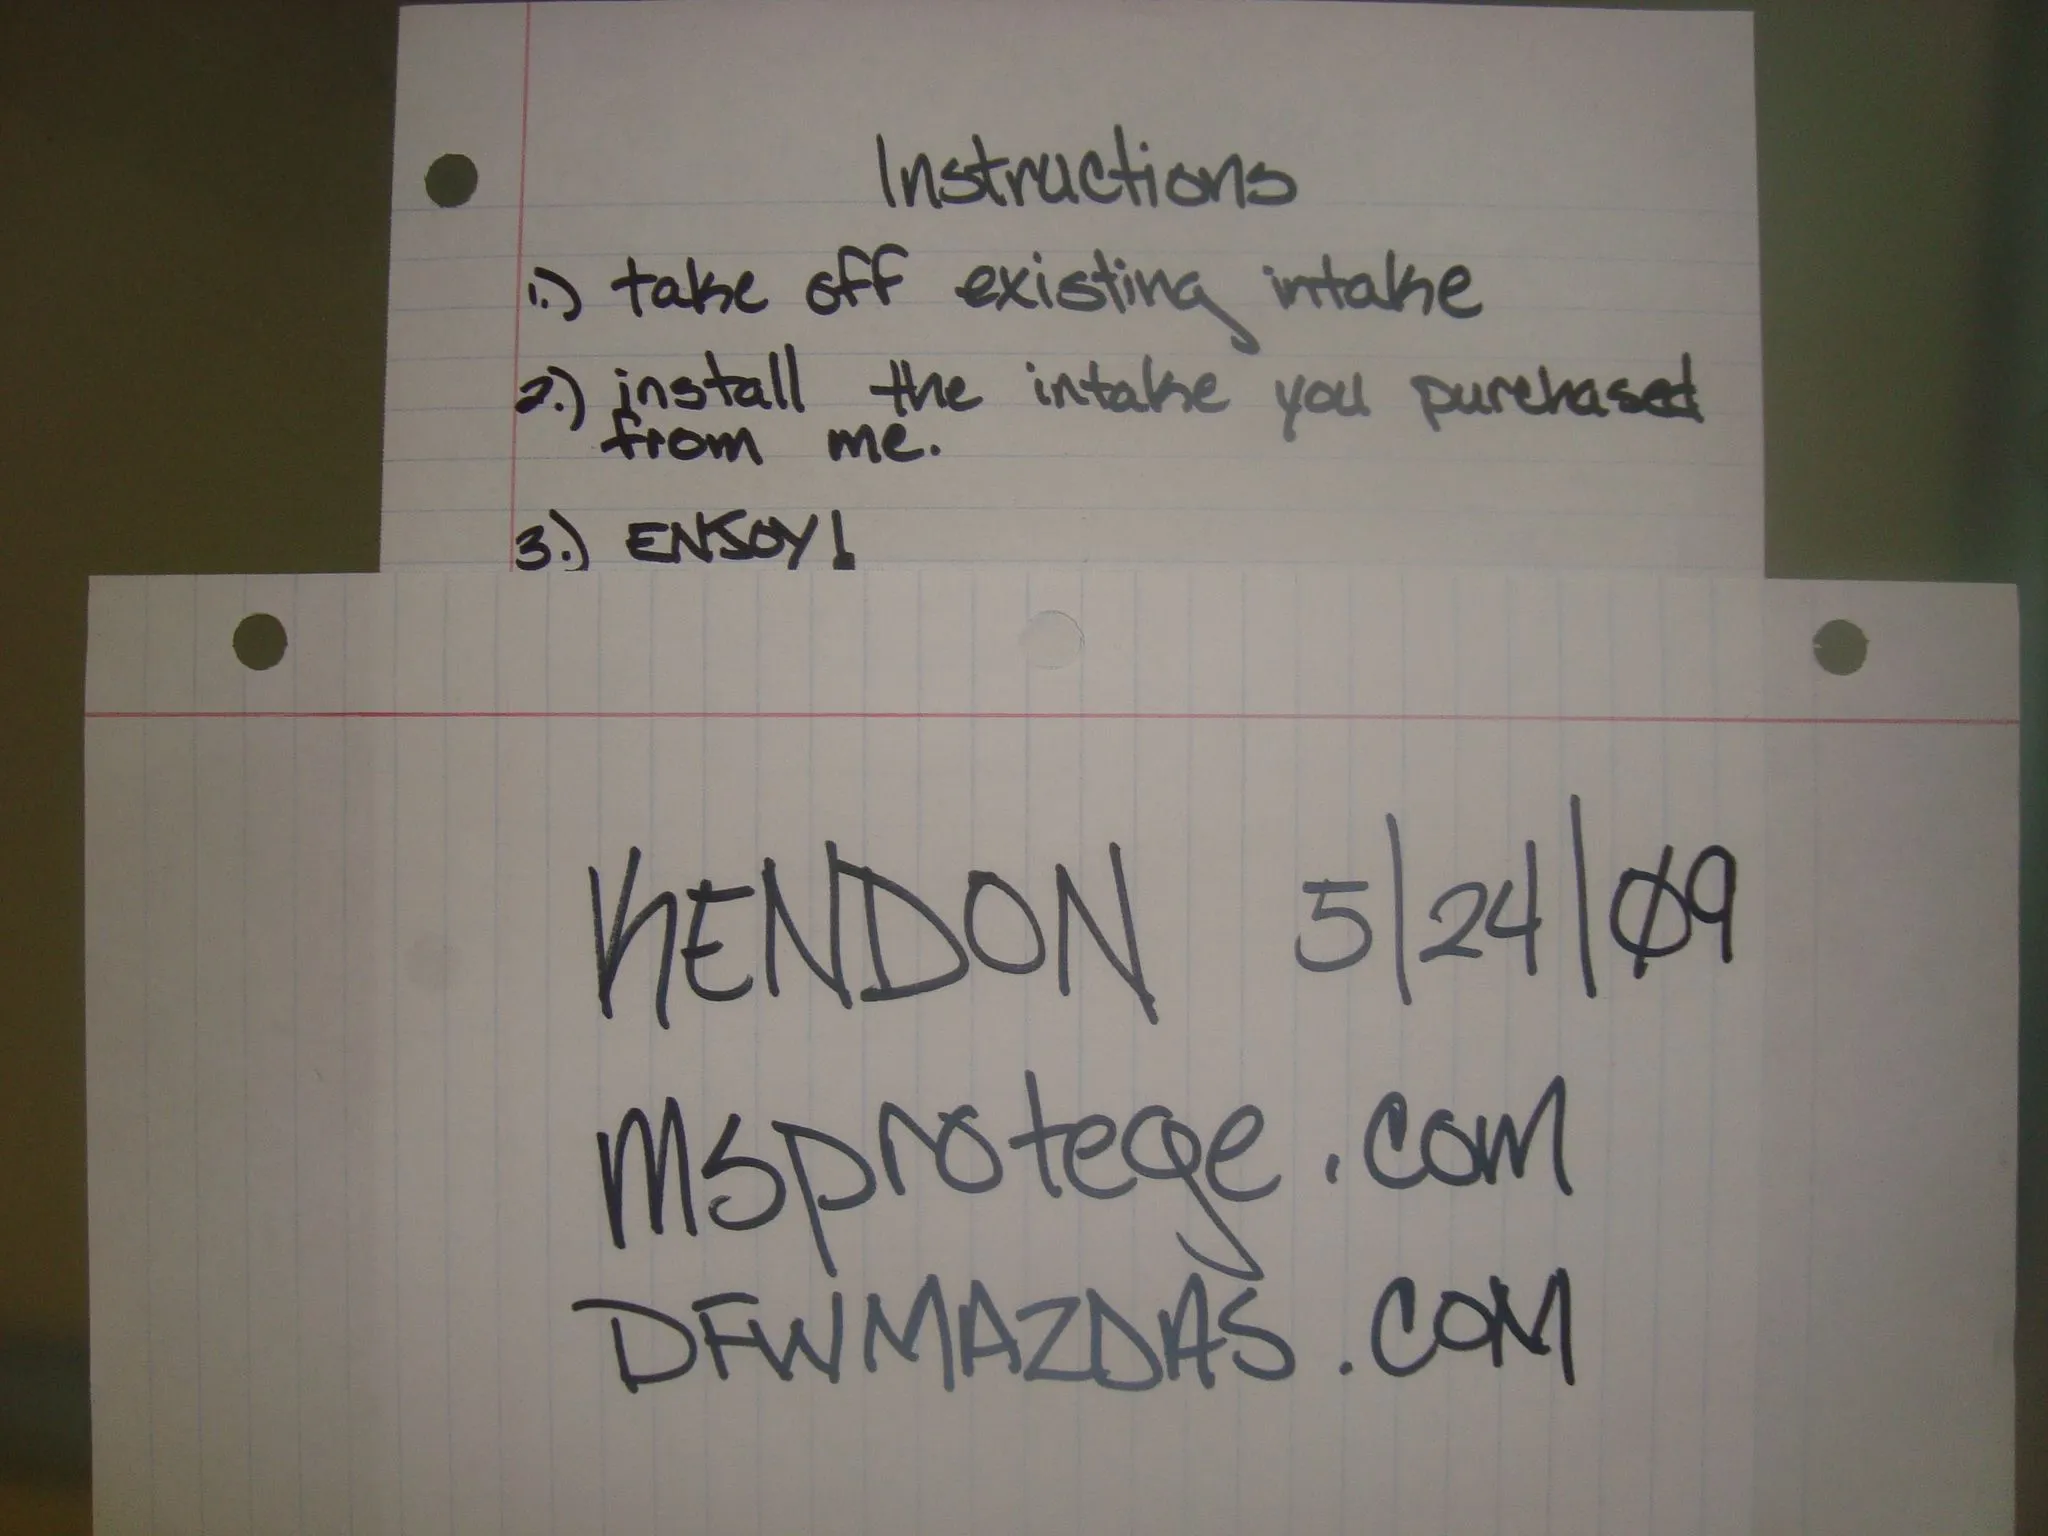 Instructions
1.) take off existing intake
2.) install the intake you purchased
from me.
3.) ENJOY!
KENDON 5/24/09
msprotege.com
DFWMAZDAS.COM